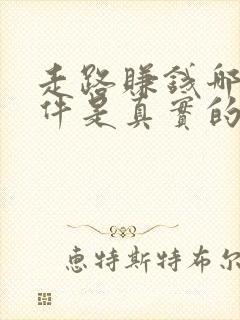 走路賺錢哪
件是真實的
惠特斯特布尔